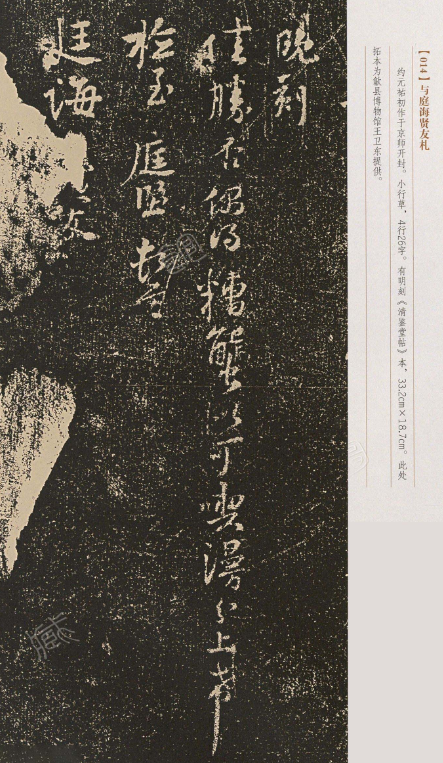 【014】与庭海贤友札
约元祐初作于京师开封。小行草，4行26字。有明刻《清鉴堂帖》本，33.2cm×18.7cm。此处
拓本为歙县博物馆王卫东提供。
晚刻
佳胜否偶得糟蟹似可喫漫分上幸
检至匡
廷诲友